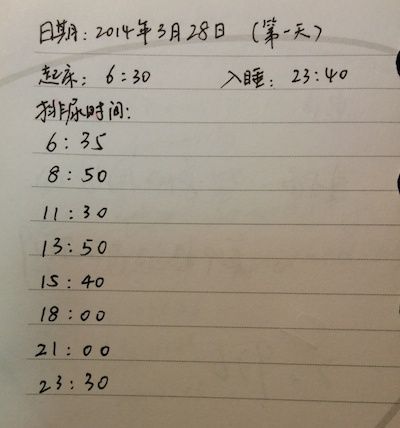 日期：2014年3月28日 （第一天）
起床：6:30 入睡：23:40
排尿时间：
6:35
8:50
11:30
13:50
15:40
18:00
21:00
23:30